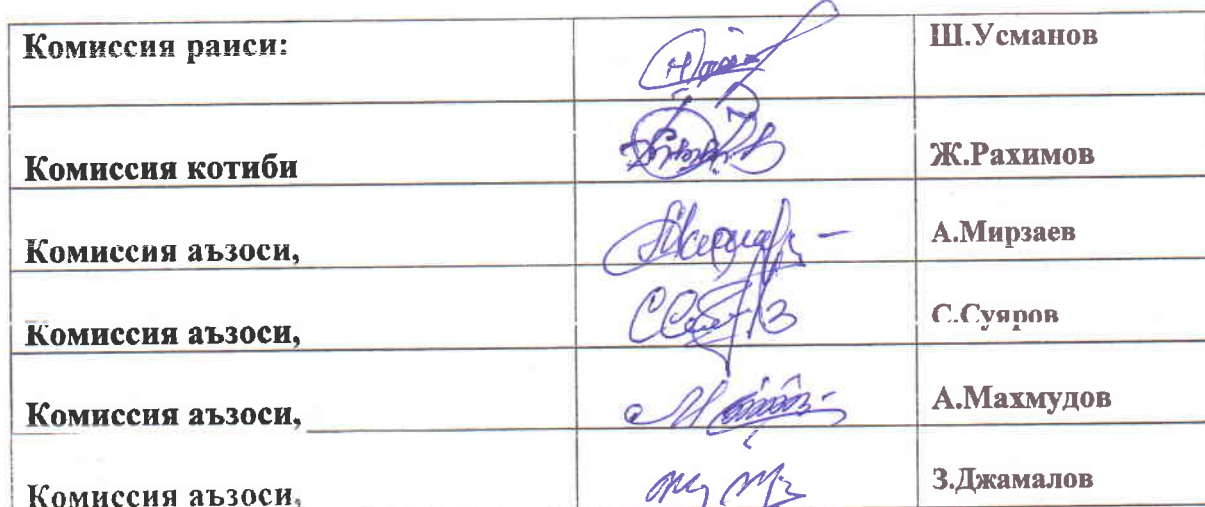 Комиссия раиси: Ш.Усманов
Комиссия котиби Ж.Рахимов
Комиссия аъзоси, А.Мирзаев
Комиссия аъзоси, С.Суяров
Комиссия аъзоси, А.Махмудов
Комиссия аъзоси, З.Джамалов